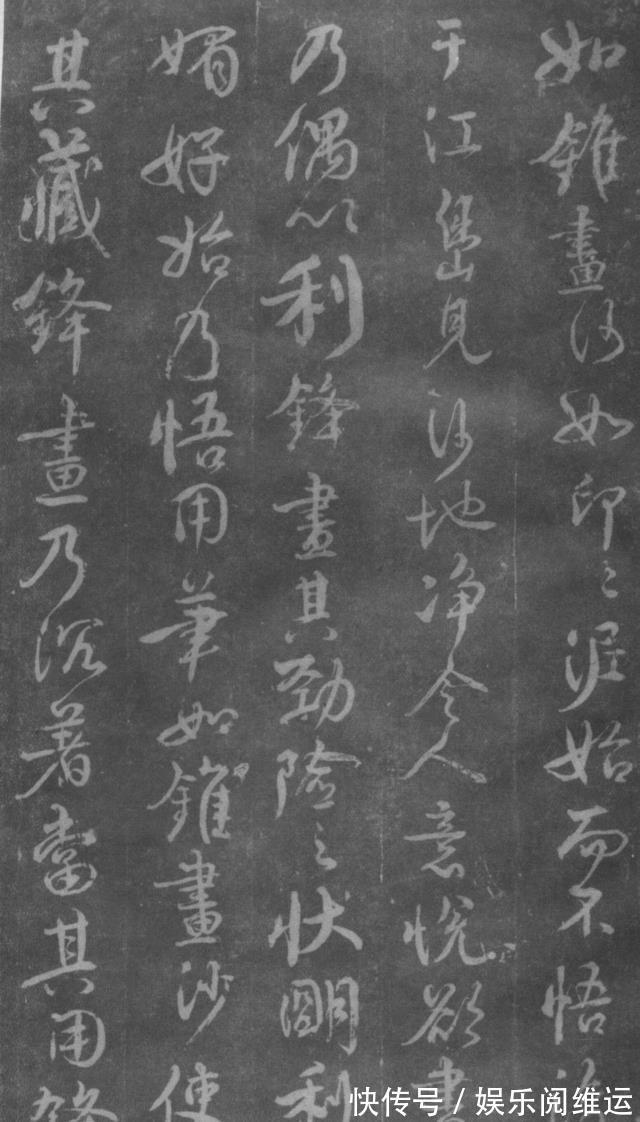 如錐畫沙如印〻泥始而不悟
于江島見沙地净令人意悅欲書
乃偶以利鋒畫其勁險之狀朙利
媚好始乃悟用筆如錐畫沙使
其藏鋒畫乃沉著當其用鋒
快传号 / 娱乐阅维运